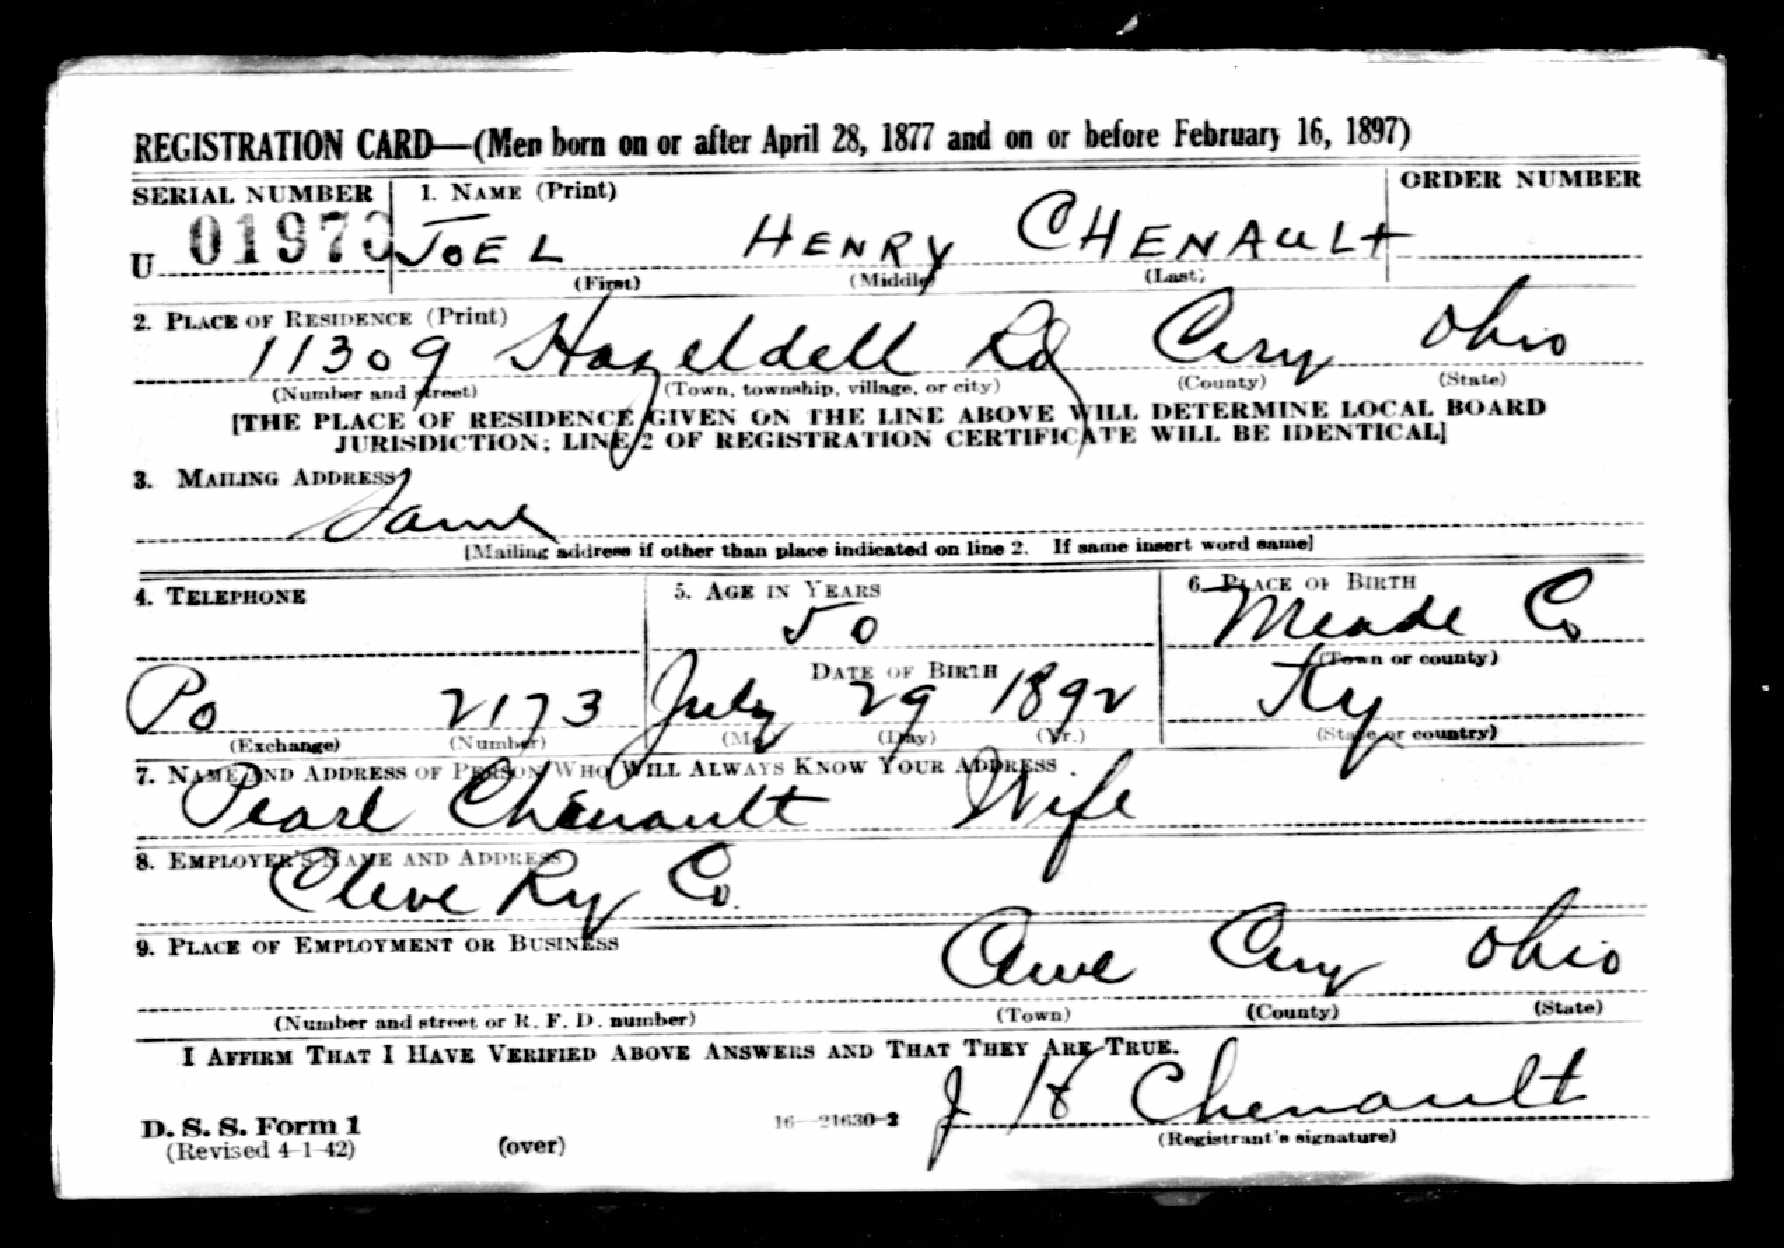 REGISTRATION CARD—(Men born on or after April 28, 1877 and on or before February 16, 1897)
SERIAL NUMBER 1. NAME (Print) ORDER NUMBER
U 0197 JOEL HENRY CHENAULT
(First) (Middle) (Last)
2. PLACE OF RESIDENCE (Print)
11309 Hazeldell Rd Cuy Ohio
(Number and street) (Town, township, village, or city) (County) (State)
[THE PLACE OF RESIDENCE GIVEN ON THE LINE ABOVE WILL DETERMINE LOCAL BOARD
JURISDICTION; LINE 2 OF REGISTRATION CERTIFICATE WILL BE IDENTICAL]
3. MAILING ADDRESS
Same
[Mailing address if other than place indicated on line 2. If same insert word same]
4. TELEPHONE 5. AGE IN YEARS 6. PLACE OF BIRTH
50 Meade Co
DATE OF BIRTH (Town or county)
Po 2173 July 29 1892 Ky
(Exchange) (Number) (Mo.) (Day) (Yr.) (State or country)
7. NAME AND ADDRESS OF PERSON WHO WILL ALWAYS KNOW YOUR ADDRESS
Pearl Chenault Wife
8. EMPLOYER'S NAME AND ADDRESS
Cleve Ry Co.
9. PLACE OF EMPLOYMENT OR BUSINESS
Cleve Cuy Ohio
(Number and street or R. F. D. number) (Town) (County) (State)
I AFFIRM THAT I HAVE VERIFIED ABOVE ANSWERS AND THAT THEY ARE TRUE.
J H Chenault
D. S. S. Form 1 16—21630-2
(Revised 4-1-42) (over) (Registrant's signature)